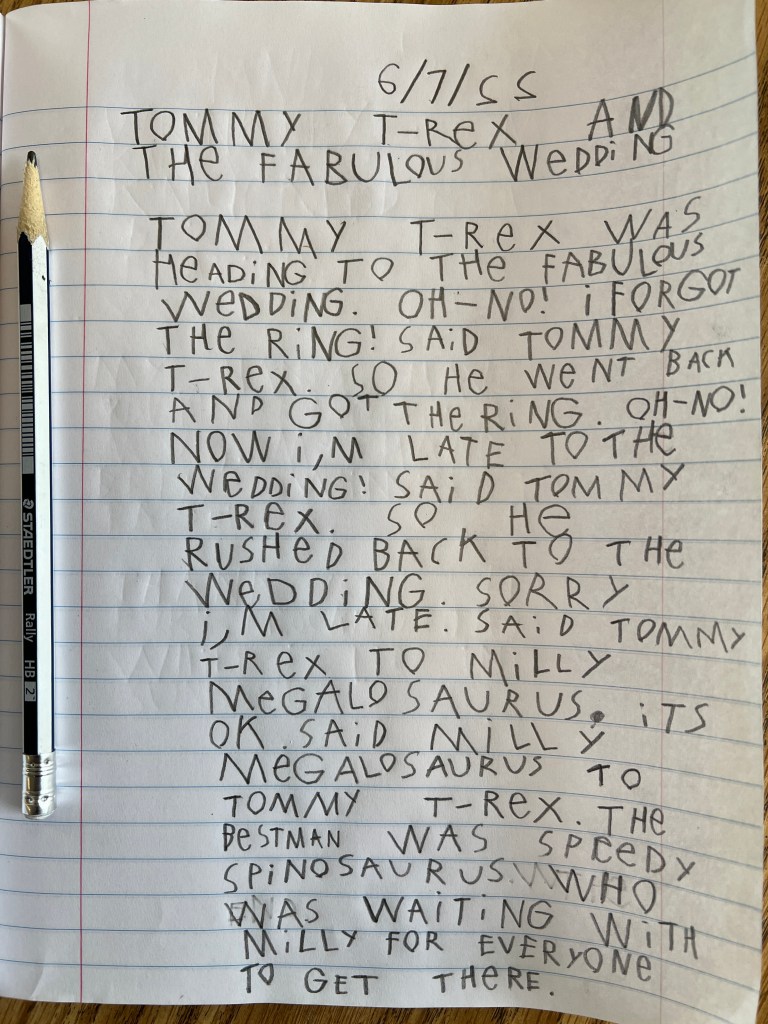 6/7/55
TOMMY T-ReX AND
THe FABULOUS WeDDiNG
TOMMY T-ReX WAS
HeADiNG TO THe FABULOUS
WeDDiNG. OH-NO! i FORGOT
THe RiNG! SAiD TOMMY
T-ReX. SO He WeNT BACK
AND GOT THe RiNG. OH-NO!
NOW i,M LATE TO THe
WeDDiNG! SAiD TOMMY
T-ReX. SO He
RUSHeD BACK TO THe
WeDDiNG. SORRY
i,M LATE. SAiD TOMMY
T-ReX TO MiLLY
MeGALOSAURUS. iTS
OK. SAiD MiLLY
MeGALOSAURUS TO
TOMMY T-ReX. THe
BeSTMAN WAS SPEeDY
SPiNOSAURUS. WHO
WAS WAiTiNG WiTH
MiLLY FOR EVERYONe
TO GET THERE.
STAEDTLER Rally HB 2